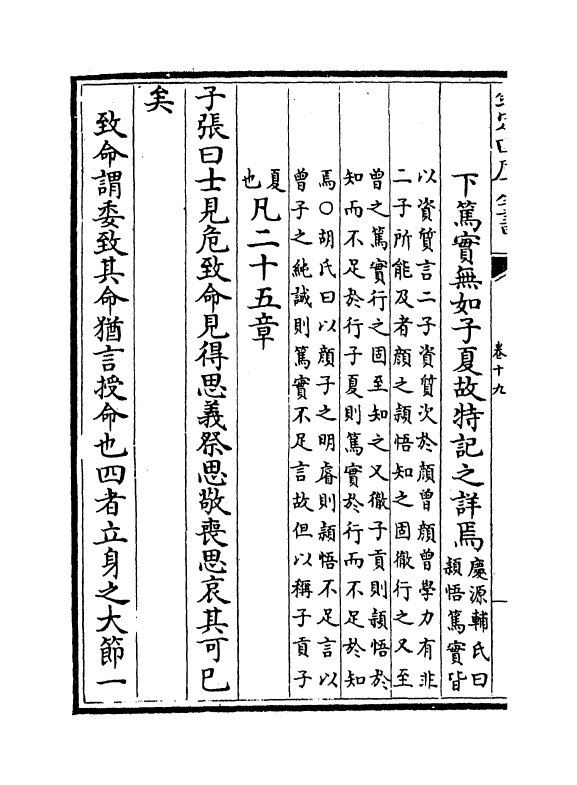 欽定四庫全書
卷十九
下篤實無如子夏故特記之詳焉
慶源輔氏曰
頴悟篤實皆
以資質言二子資質次於顔曾顔曾學力有非
二子所能及者顔之頴悟知之固徹行之又至
曾之篤實行之固至知之又徹子貢則頴悟於
知而不足於行子夏則篤實於行而不足於知
焉○胡氏曰以顔子之明睿則頴悟不足言以
曾子之純誠則篤實不足言故但以稱子貢子
夏
也
凡二十五章
子張曰士見危致命見得思義祭思敬喪思哀其可已
矣
致命謂委致其命猶言授命也四者立身之大節一